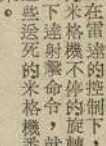 在雷達的控制下，
米格機不停的旋轉
下達射擊命令，就
些送死的米格機
。